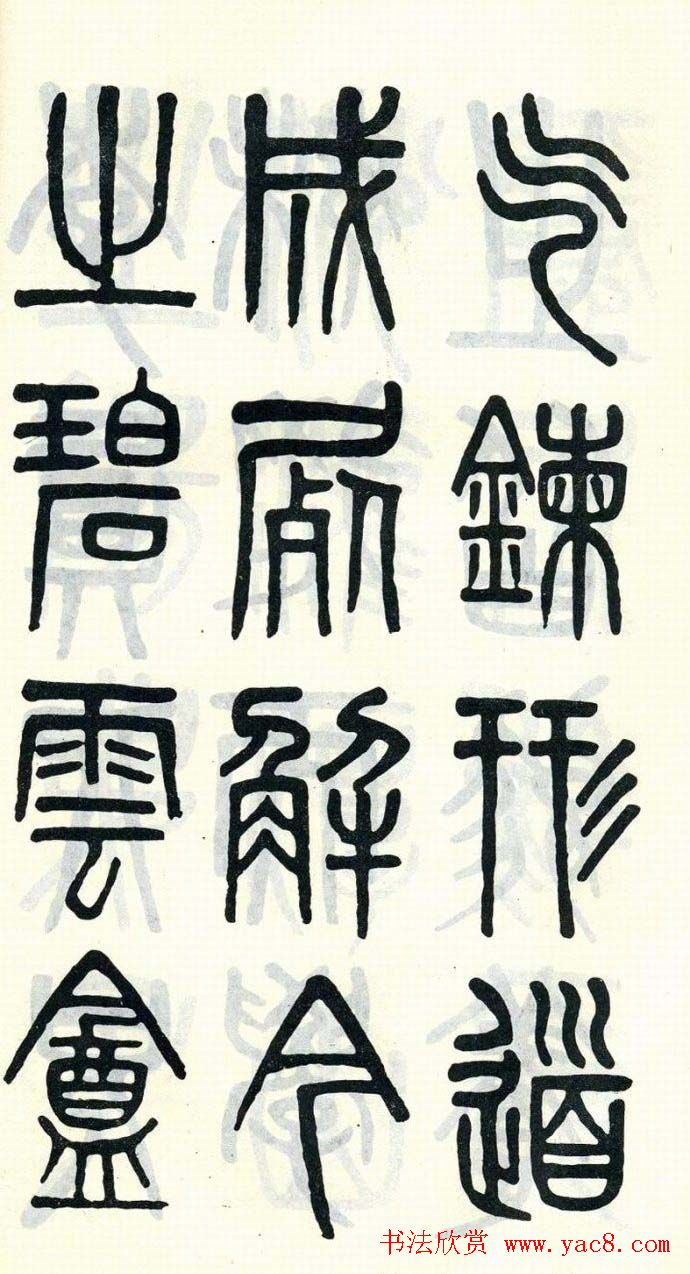 气鍊形道
成屍解今
之碧雲盦
书法欣赏 www.yac8.com